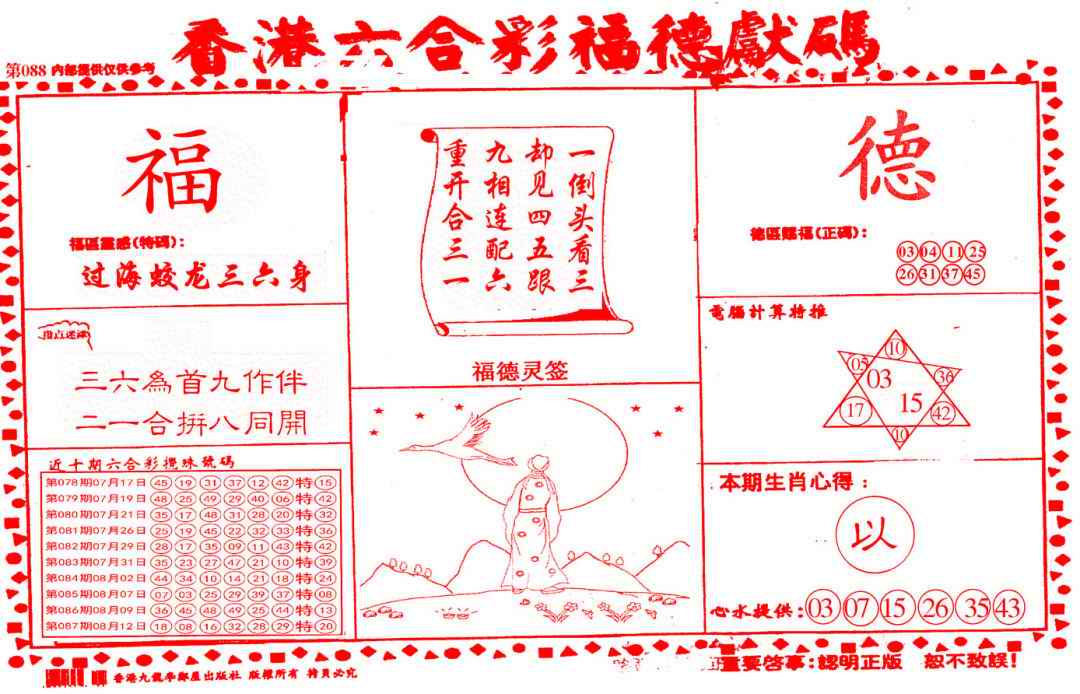 香港六合彩福德獻碼
第088 内部提供仅供参考
福
福區靈感(特碼):
过海蛟龙三六身
指点迷津
三六為首九作伴
二一合拼八同開
近十期六合彩攪珠號碼
第078期07月17日 45 19 31 37 12 42 特 15
第079期07月19日 48 25 49 29 40 06 特 42
第080期07月21日 35 17 48 31 28 20 特 32
第081期07月26日 25 19 45 22 32 33 特 36
第082期07月29日 28 17 35 09 11 43 特 42
第083期07月31日 35 23 27 47 21 10 特 39
第084期08月02日 44 34 10 14 21 18 特 24
第085期08月07日 07 03 25 29 39 37 特 08
第086期08月09日 36 45 48 49 25 44 特 13
第087期08月12日 18 08 16 32 28 29 特 20
一倒头看三
却见四五跟
九相连配六
重开合三一
福德灵签
德
德區賜福(正碼):
03 04 11 25
26 31 37 45
電腦計算特推
10
05 03 36
17 15 42
10
本期生肖心得:
以
心水提供: 03 07 15 26 35 43
香港九龍學鄰屋出版社 版權所有
重要啓事:認明正版 恕不致誤!